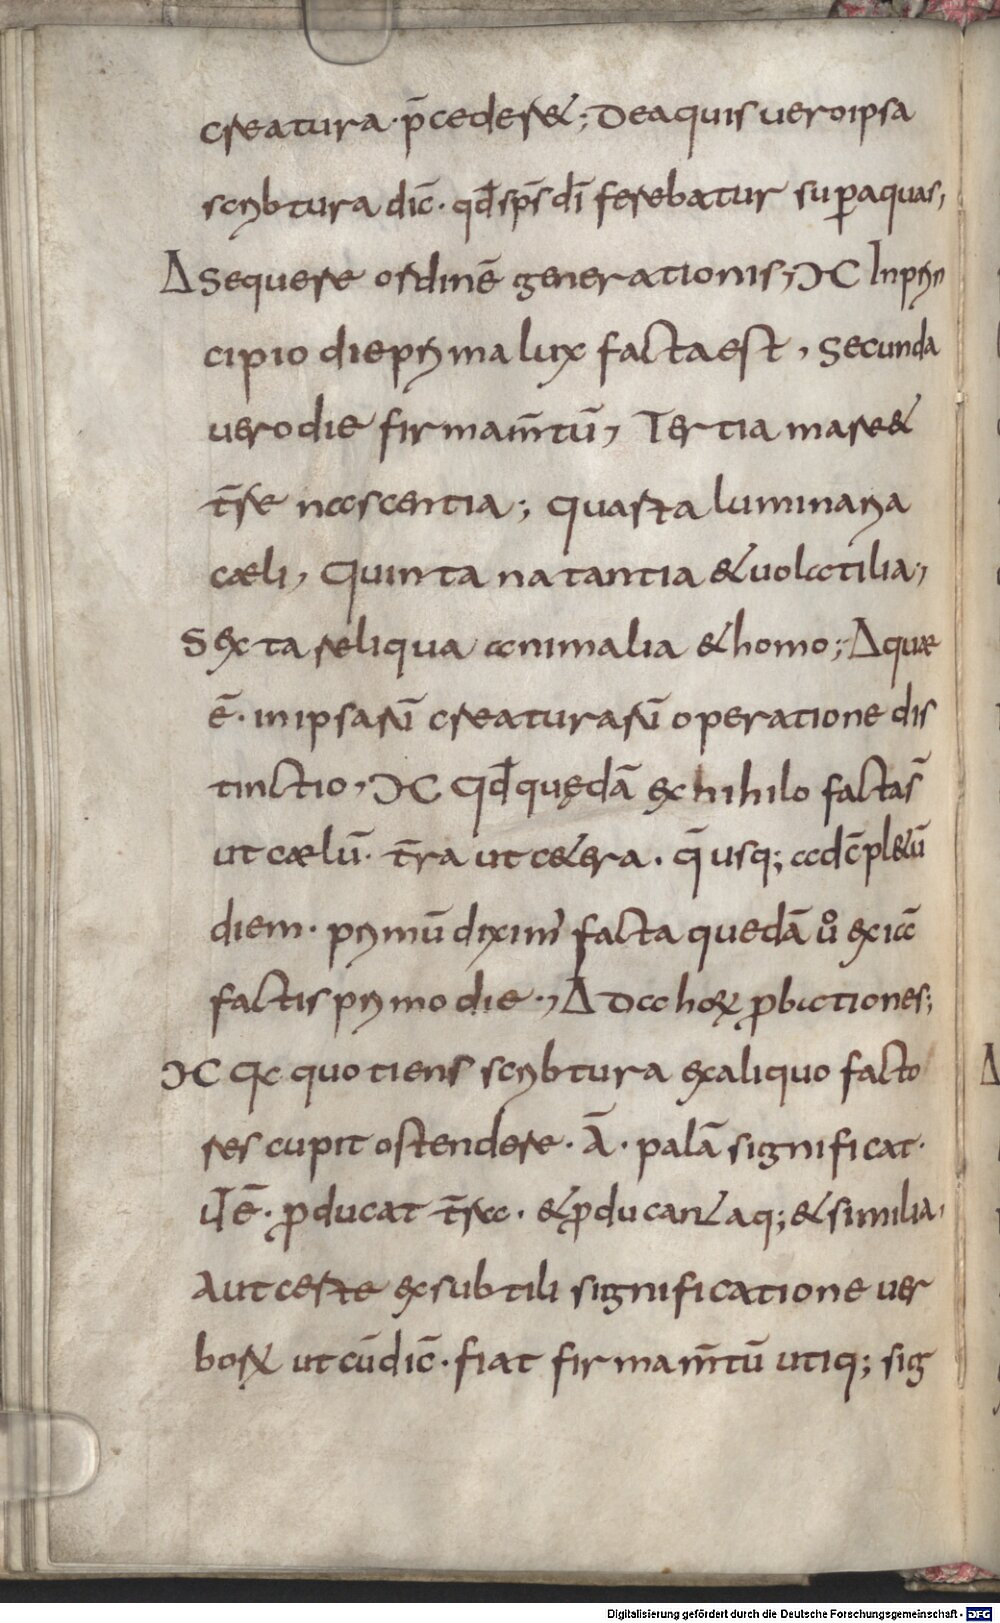 creatura· p̄cederet&; De aquis vero ipsa
scribtura dic̄· qđ sp̄s dī ferebatur sup aquas,
Δ Sequere ordinē generationis; Ↄ C In prin
cipio die prima lux facta est, Secunda
vero die firmam̄tū, Tertia mare &
t̄re nascentia; Quarta luminaria
cæli, Quinta natantia & volatilia,
Sexta reliqua animalia & homo; Δ quæ
ē· in ipsarū creaturarū operatione dis
tinctio, Ↄ C Qđ quędā ex nihilo facta s̄
ut cælū· t̄ra ut c&era· q̄ usq; ad c̄pl&ū
diem· primū diximꝰ facta quedā uͦ ex iā
factis primo die·, Δ Da hoꝝ ꝓbationes;
Ↄ C Qa quotiens scribtura ex aliquo facto
res cupit ostendere· Ā· palā significat·
Ut ē· ꝓducat t̄ra· & ꝓducant aq; & similia,
Aut certe ex subtili significatione ver
boꝝ ut cū dic̄· fiat firmam̄tū utiq; sig
Digitalisierung gefördert durch die Deutsche Forschungsgemeinschaft - DFG